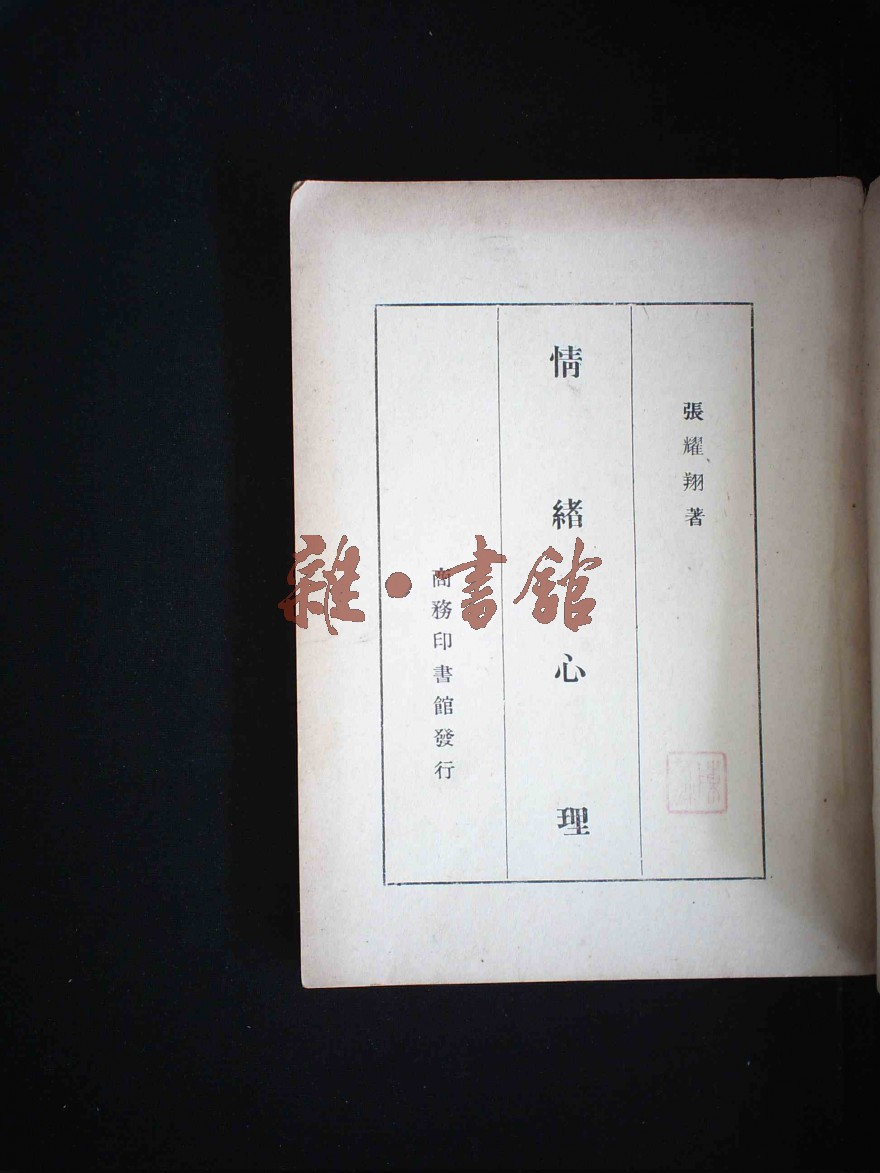 張耀翔著
情緒心理
商務印書館發行
雜·書館